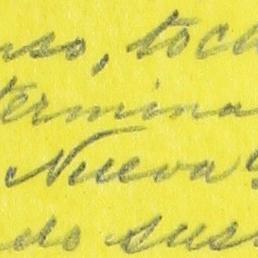 nso, toca
termina
Nueva Y
do sus